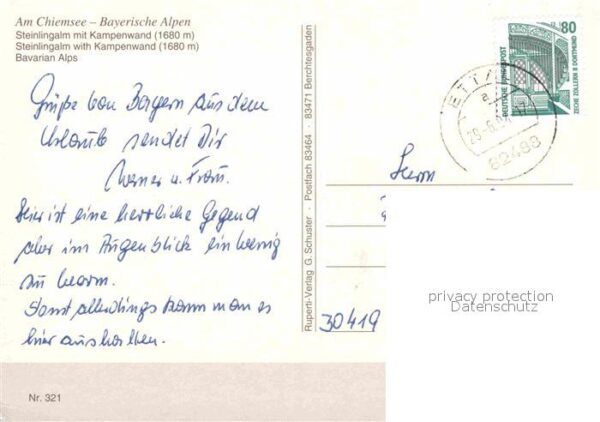 Am Chiemsee – Bayerische Alpen
Steinlingalm mit Kampenwand (1680 m)
Steinlingalm with Kampenwand (1680 m)
Bavarian Alps
Grüße von Bayern aus dem
Urlaub sendet Dir
Werner u. Frau.
Hier ist eine herrliche Gegend
aber im Augenblick ein wenig
zu warm.
Sonst allerdings kann man es
hier aushalten.
Nr. 321
Ruperti-Verlag G. Schuster · Postfach 83464 · 83471 Berchtesgaden
80
DEUTSCHE BUNDESPOST
ZECHE ZOLLERN II DORTMUND
ETTA
a
82488
Herrn
30419
privacy protection
Datenschutz